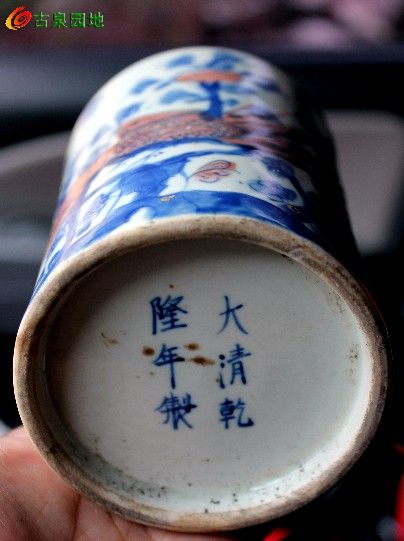 古泉园地
大清乾
隆年製